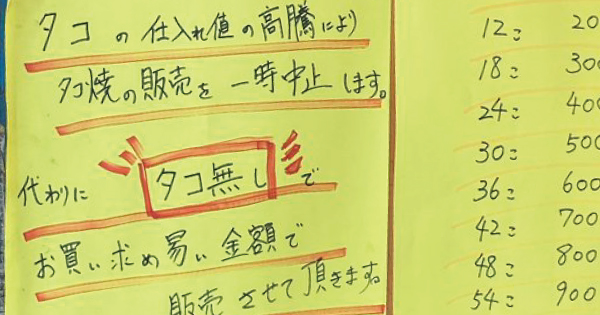 タコの仕入れ値の高騰により
タコ焼の販売を一時中止します。
代わりにタコ無しで
お買い求め易い金額で
販売させて頂きます。
12コ 20
18コ 300
24コ 400
30コ 500
36コ 600
42コ 700
48コ 800
54コ 900